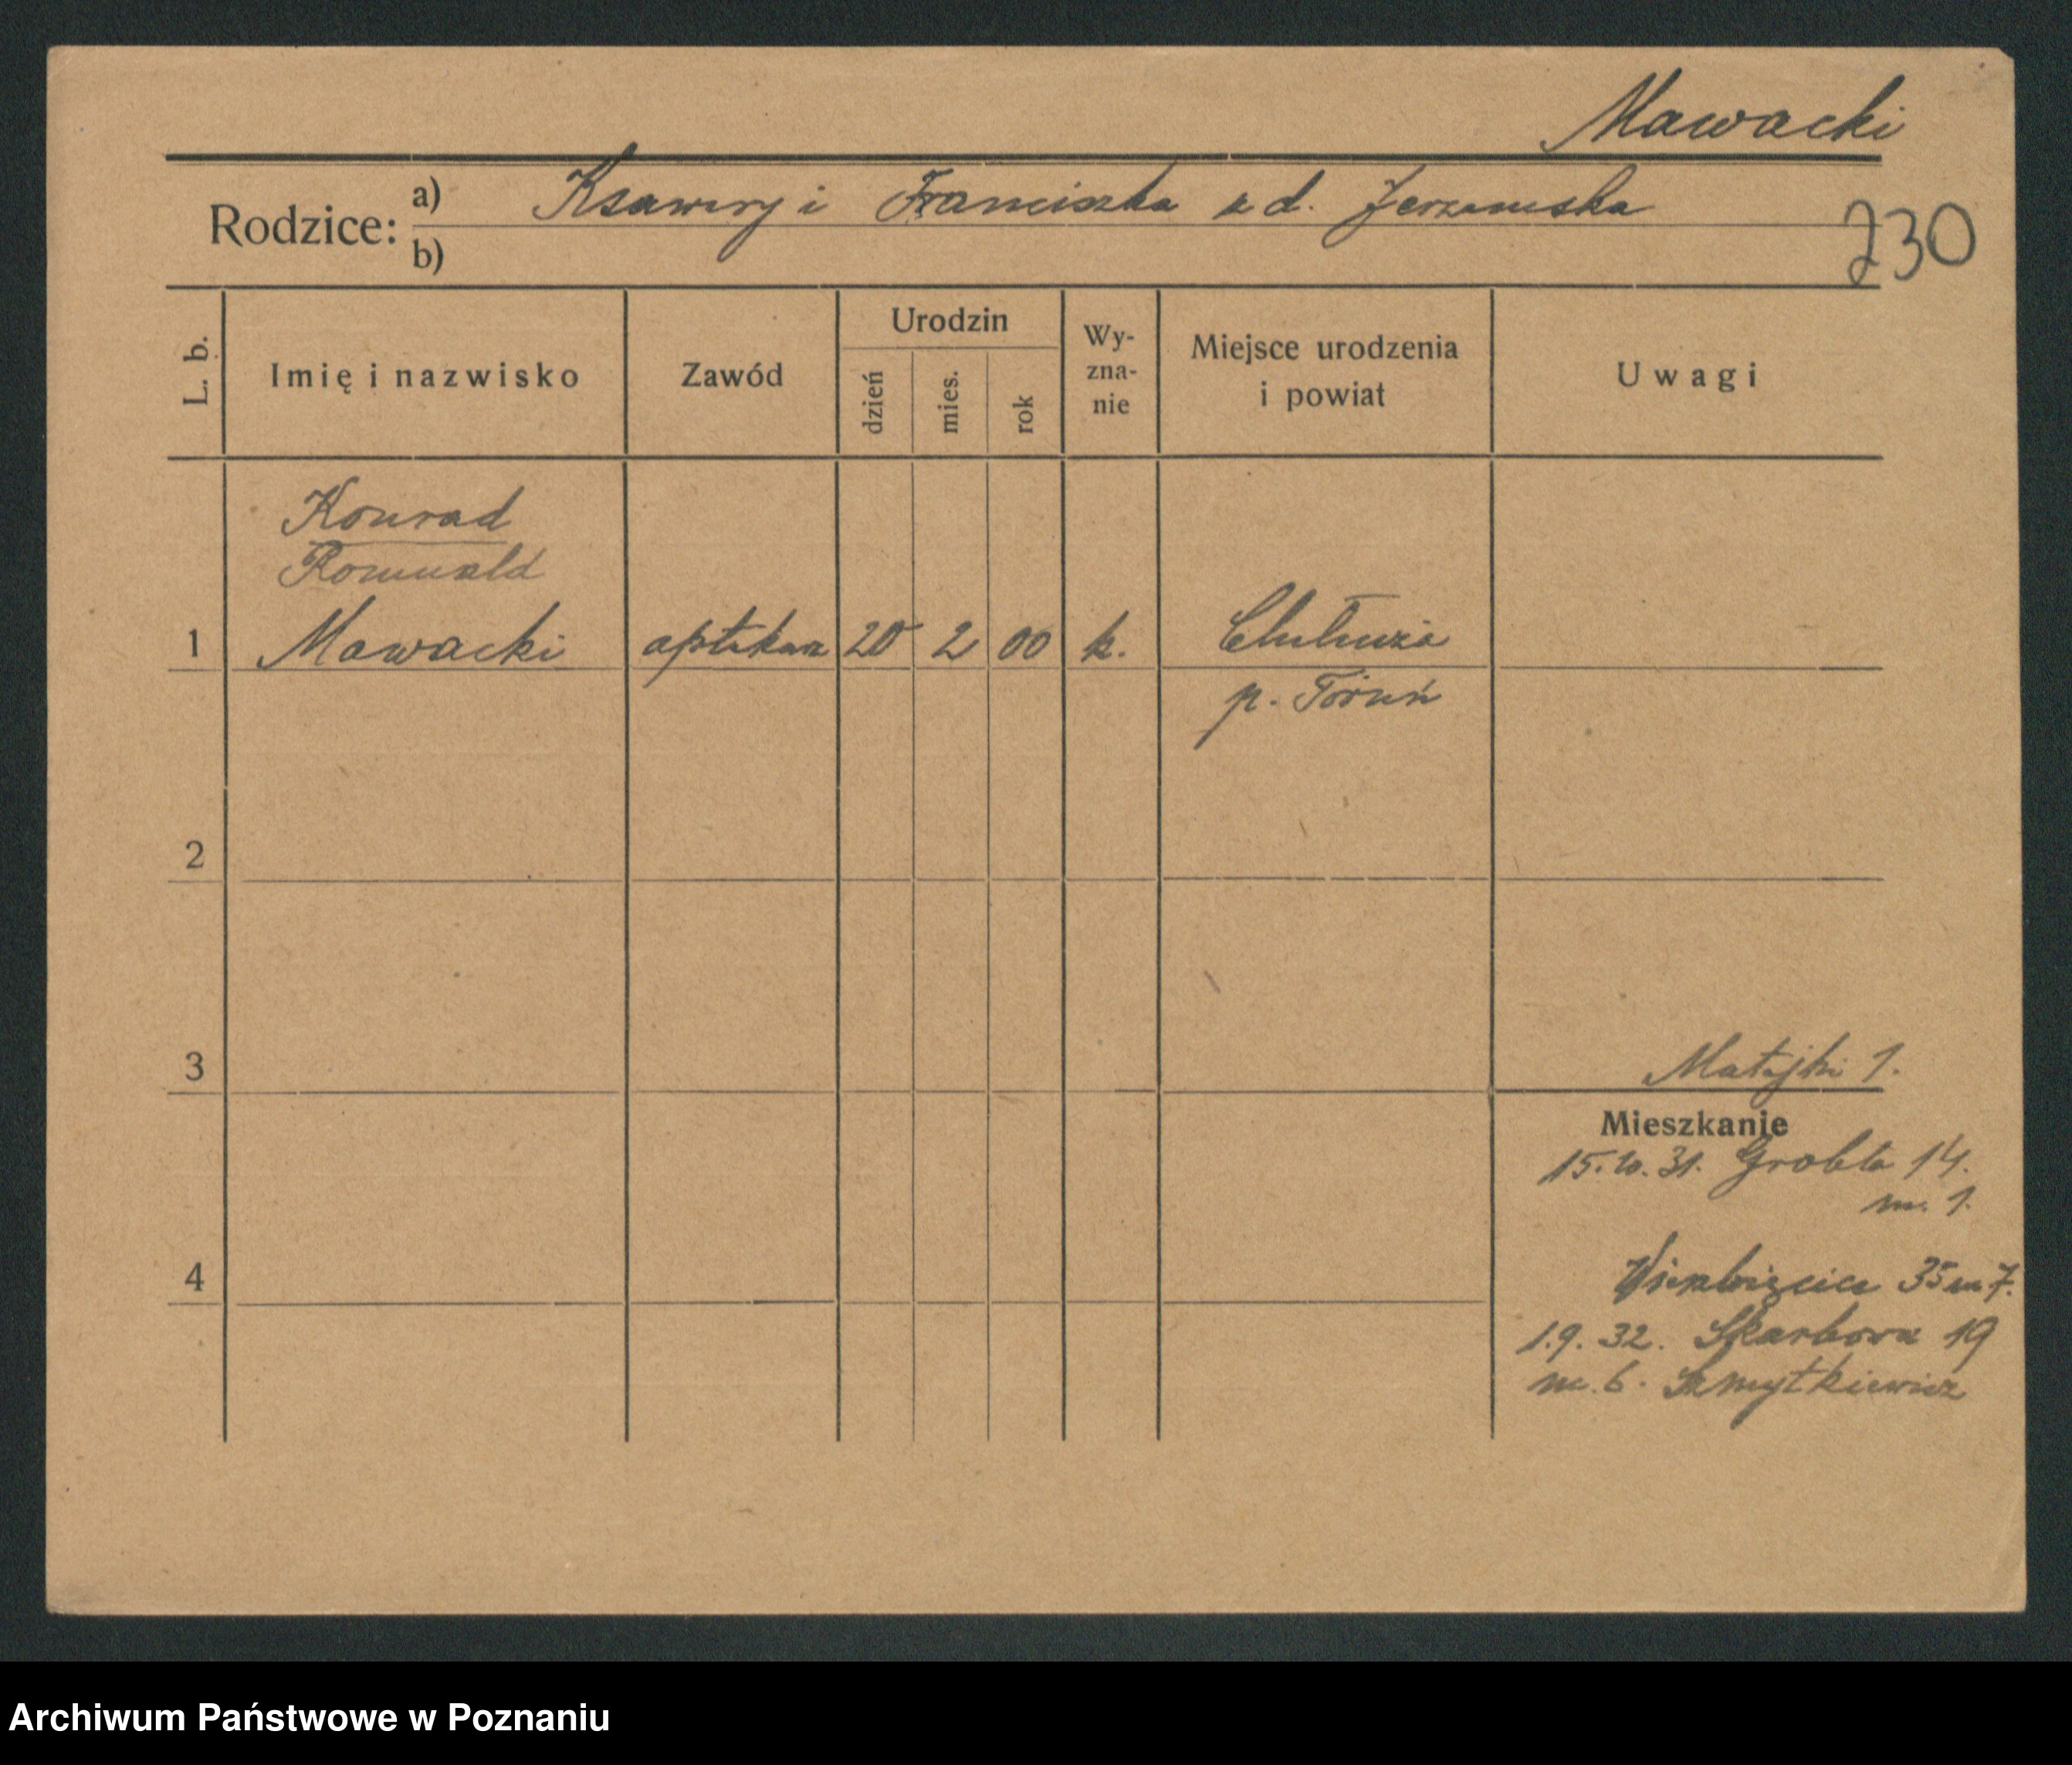 Mawacki
Rodzice: a) Ksawery i Franciszka z d. Jerzewska
b)
230
L. b.
Imię i nazwisko
Zawód
Urodzin
dzień
mies.
rok
Wy-
zna-
nie
Miejsce urodzenia
i powiat
Uwagi
Konrad
Romuald
1 Mawacki aptekarz 20 2 00 k. Chełmża
p. Toruń
2
3
Matejki 1.
Mieszkanie
15.10.31. Grobla 14.
m. 1.
4
Wierzbięcice 35 m 7.
1.9.32. Skarbowa 19
m. 6. Szmytkiewicz
Archiwum Państwowe w Poznaniu